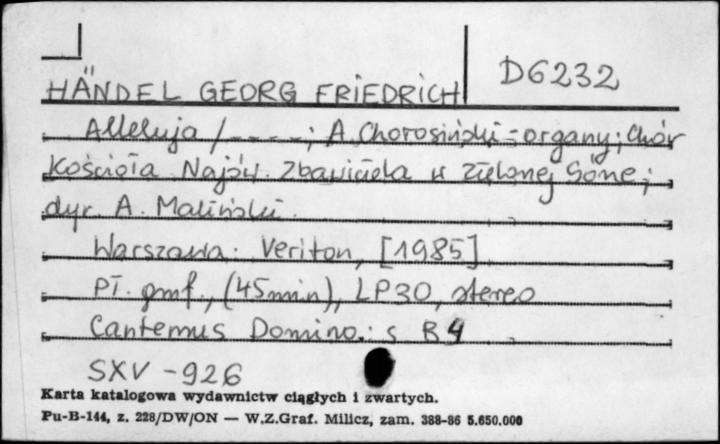 D6232
HÄNDEL GEORG FRIEDRICH
Alleluja / ----; A. Chorosiński - organy; Chór
Kościoła Najśw. Zbawiciela w Zielonej Górze;
dyr. A. Maliński.
Warszawa: Veriton, [1985]
Pł. gmf., (45 min), LP30, stereo
Cantemus Domino.: s. B4
SXV - 926
Karta katalogowa wydawnictw ciągłych i zwartych.
Pu-B-144, z. 228/DW/ON — W.Z.Graf. Milicz, zam. 388-86 5.650.000